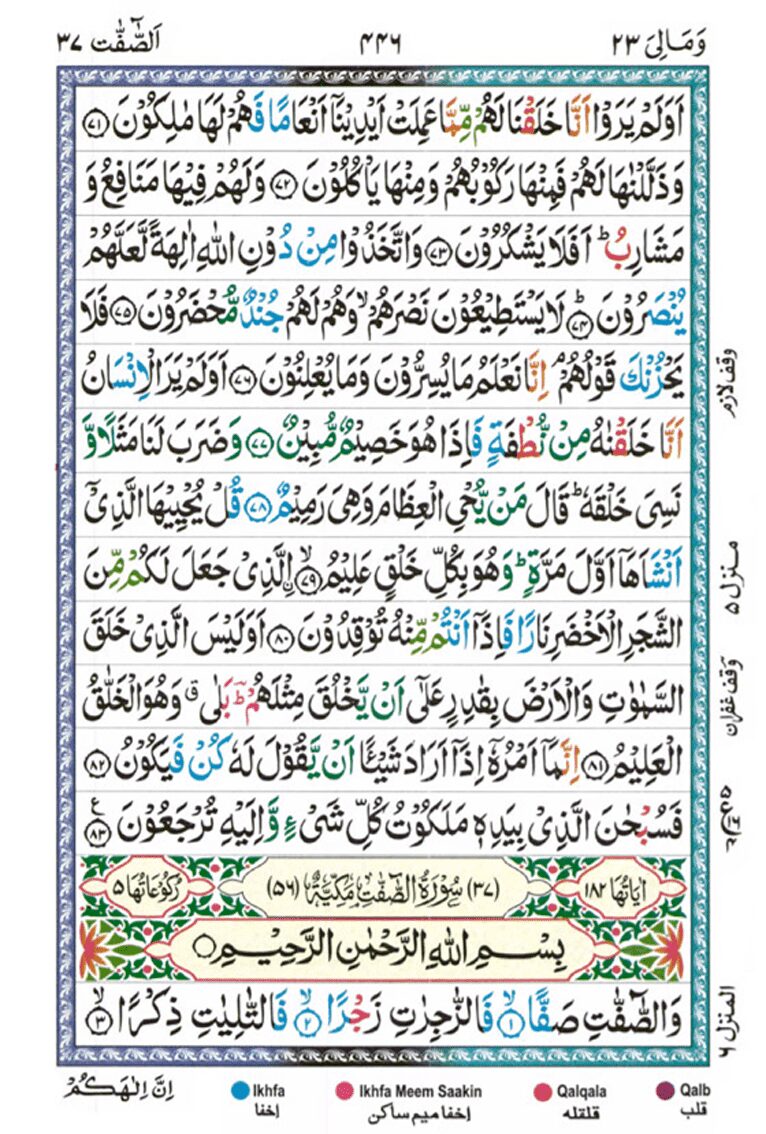 وَمَالِیَ ۲۳
۴۴۶
اَلصّٰٓفّٰت ۳۷
اَوَلَمْ يَرَوْا اَنَّا خَلَقْنَا لَهُمْ مِّمَّا عَمِلَتْ اَيْدِيْنَاۤ اَنْعَامًا فَهُمْ لَهَا مٰلِكُوْنَ ﴿۷۱﴾
وَذَلَّلْنٰهَا لَهُمْ فَمِنْهَا رَكُوْبُهُمْ وَمِنْهَا يَاْكُلُوْنَ ﴿۷۲﴾ وَلَهُمْ فِيْهَا مَنَافِعُ وَ
مَشَارِبُ ؕ اَفَلَا يَشْكُرُوْنَ ﴿۷۳﴾ وَاتَّخَذُوْا مِنْ دُوْنِ اللّٰهِ اٰلِهَةً لَّعَلَّهُمْ
يُنْصَرُوْنَ ؕ﴿۷۴﴾ لَا يَسْتَطِيْعُوْنَ نَصْرَهُمْ ۙ وَهُمْ لَهُمْ جُنْدٌ مُّحْضَرُوْنَ ﴿۷۵﴾ فَلَا
يَحْزُنْكَ قَوْلُهُمْ ۘ اِنَّا نَعْلَمُ مَا يُسِرُّوْنَ وَمَا يُعْلِنُوْنَ ﴿۷۶﴾ اَوَلَمْ يَرَ الْاِنْسَانُ
اَنَّا خَلَقْنٰهُ مِنْ نُّطْفَةٍ فَاِذَا هُوَ خَصِيْمٌ مُّبِيْنٌ ﴿۷۷﴾ وَضَرَبَ لَنَا مَثَلًا وَّ
نَسِیَ خَلْقَهٗ ؕ قَالَ مَنْ يُّحْیِ الْعِظَامَ وَهِیَ رَمِيْمٌ ﴿۷۸﴾ قُلْ يُحْيِيْهَا الَّذِیْۤ
اَنْشَاَهَاۤ اَوَّلَ مَرَّةٍ ؕ وَهُوَ بِكُلِّ خَلْقٍ عَلِيْمُ ۙ﴿۷۹﴾ اۨلَّذِیْ جَعَلَ لَكُمْ مِّنَ
الشَّجَرِ الْاَخْضَرِ نَارًا فَاِذَاۤ اَنْتُمْ مِّنْهُ تُوْقِدُوْنَ ﴿۸۰﴾ اَوَلَيْسَ الَّذِیْ خَلَقَ
السَّمٰوٰتِ وَالْاَرْضَ بِقٰدِرٍ عَلٰۤی اَنْ يَّخْلُقَ مِثْلَهُمْ ؕ بَلٰی ۗ وَهُوَ الْخَلّٰقُ
الْعَلِيْمُ ﴿۸۱﴾ اِنَّمَاۤ اَمْرُهٗۤ اِذَاۤ اَرَادَ شَيْـًٔا اَنْ يَّقُوْلَ لَهٗ كُنْ فَيَكُوْنُ ﴿۸۲﴾
فَسُبْحٰنَ الَّذِیْ بِيَدِهٖ مَلَكُوْتُ كُلِّ شَیْءٍ وَّاِلَيْهِ تُرْجَعُوْنَ ﴿۸۳﴾ ع
اٰيَاتُهَا ۱۸۲ (۳۷) سُوْرَةُ الصّٰٓفّٰتِ مَكِّيَّةٌ (۵۶) رُكُوْعَاتُهَا ۵
بِسْمِ اللّٰهِ الرَّحْمٰنِ الرَّحِيْمِ
وَالصّٰٓفّٰتِ صَفًّا ۙ﴿۱﴾ فَالزّٰجِرٰتِ زَجْرًا ۙ﴿۲﴾ فَالتّٰلِيٰتِ ذِكْرًا ۙ﴿۳﴾
وقف لازم
منزل ۵
وقف غفران
المنزل ۶
اِنَّ اِلٰهَكُمْ
Ikhfa
اخفا
Ikhfa Meem Saakin
اخفا میم ساکن
Qalqala
قلقله
Qalb
قلب